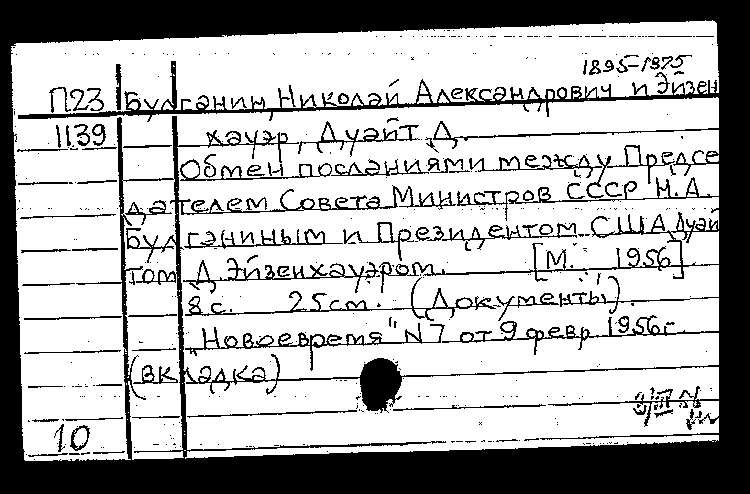 1895-1975
П23 Булганин, Николай Александрович и Эйзен
1139 хауэр, Дуайт Д.
Обмен посланиями между Предсе
дателем Совета Министров СССР Н.А.
Булганиным и Президентом США Дуай
том Д. Эйзенхауэром. [М. 1956]
8 с. 25cm. (Документы).
"Новое время" N 7 от 9 февр 1956г.
(вкладка)
10